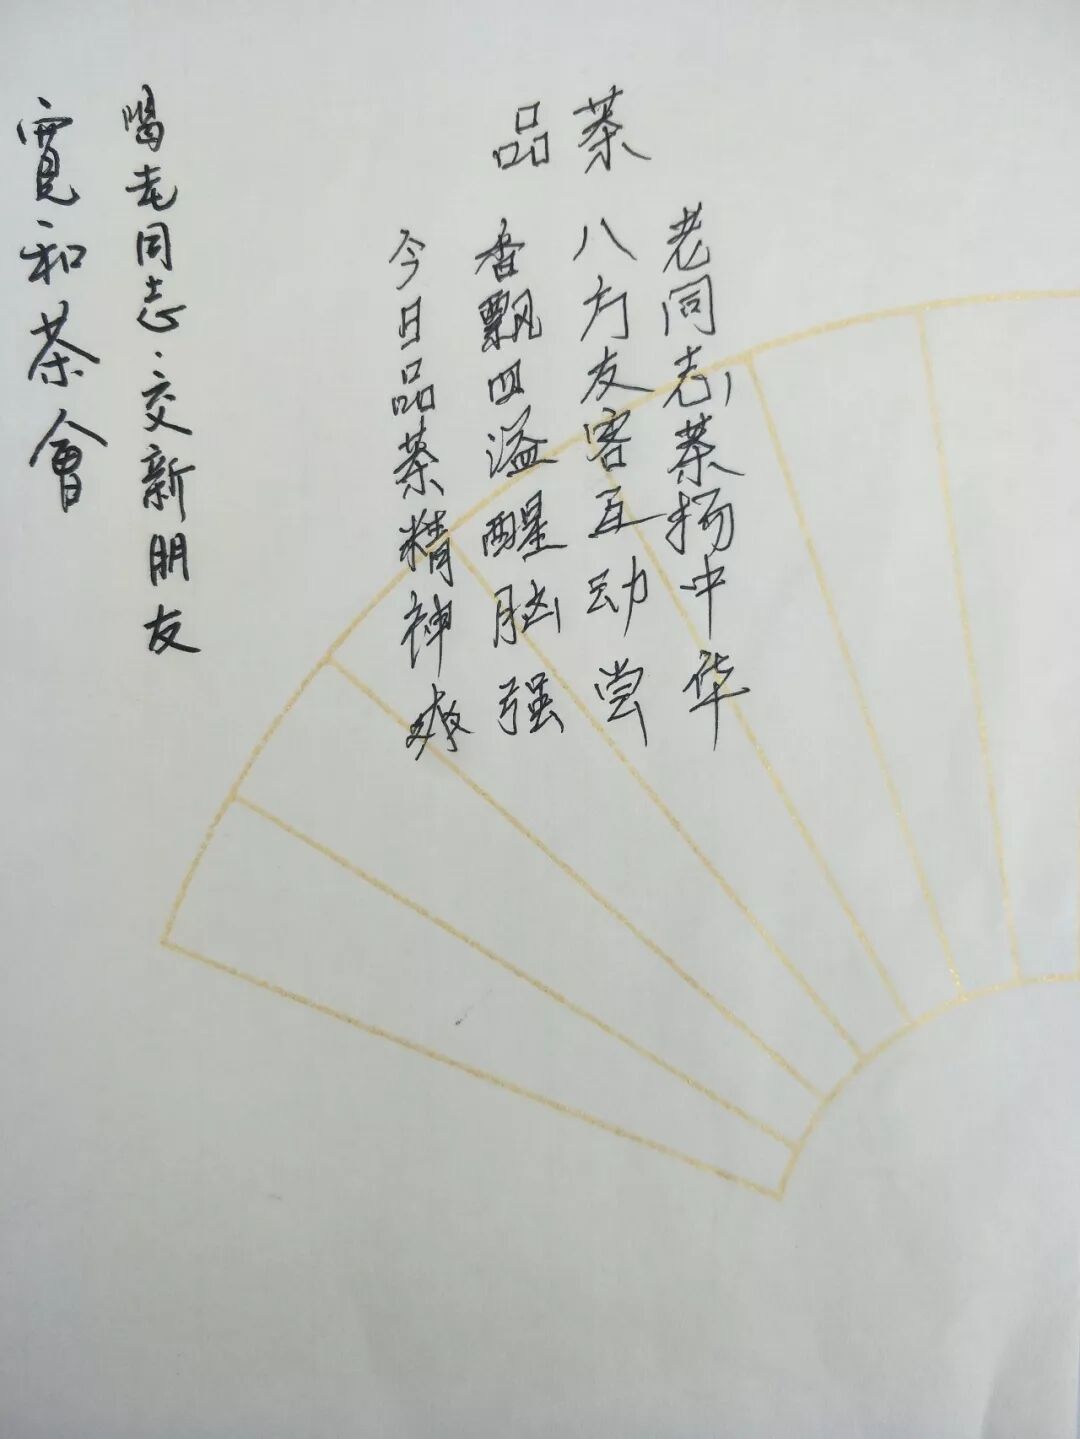 品茶
老同志茶扬中华
八方友客互动尝
香飘四溢醒脑强
今日品茶精神爽
喝老同志·交新朋友
寬和茶會